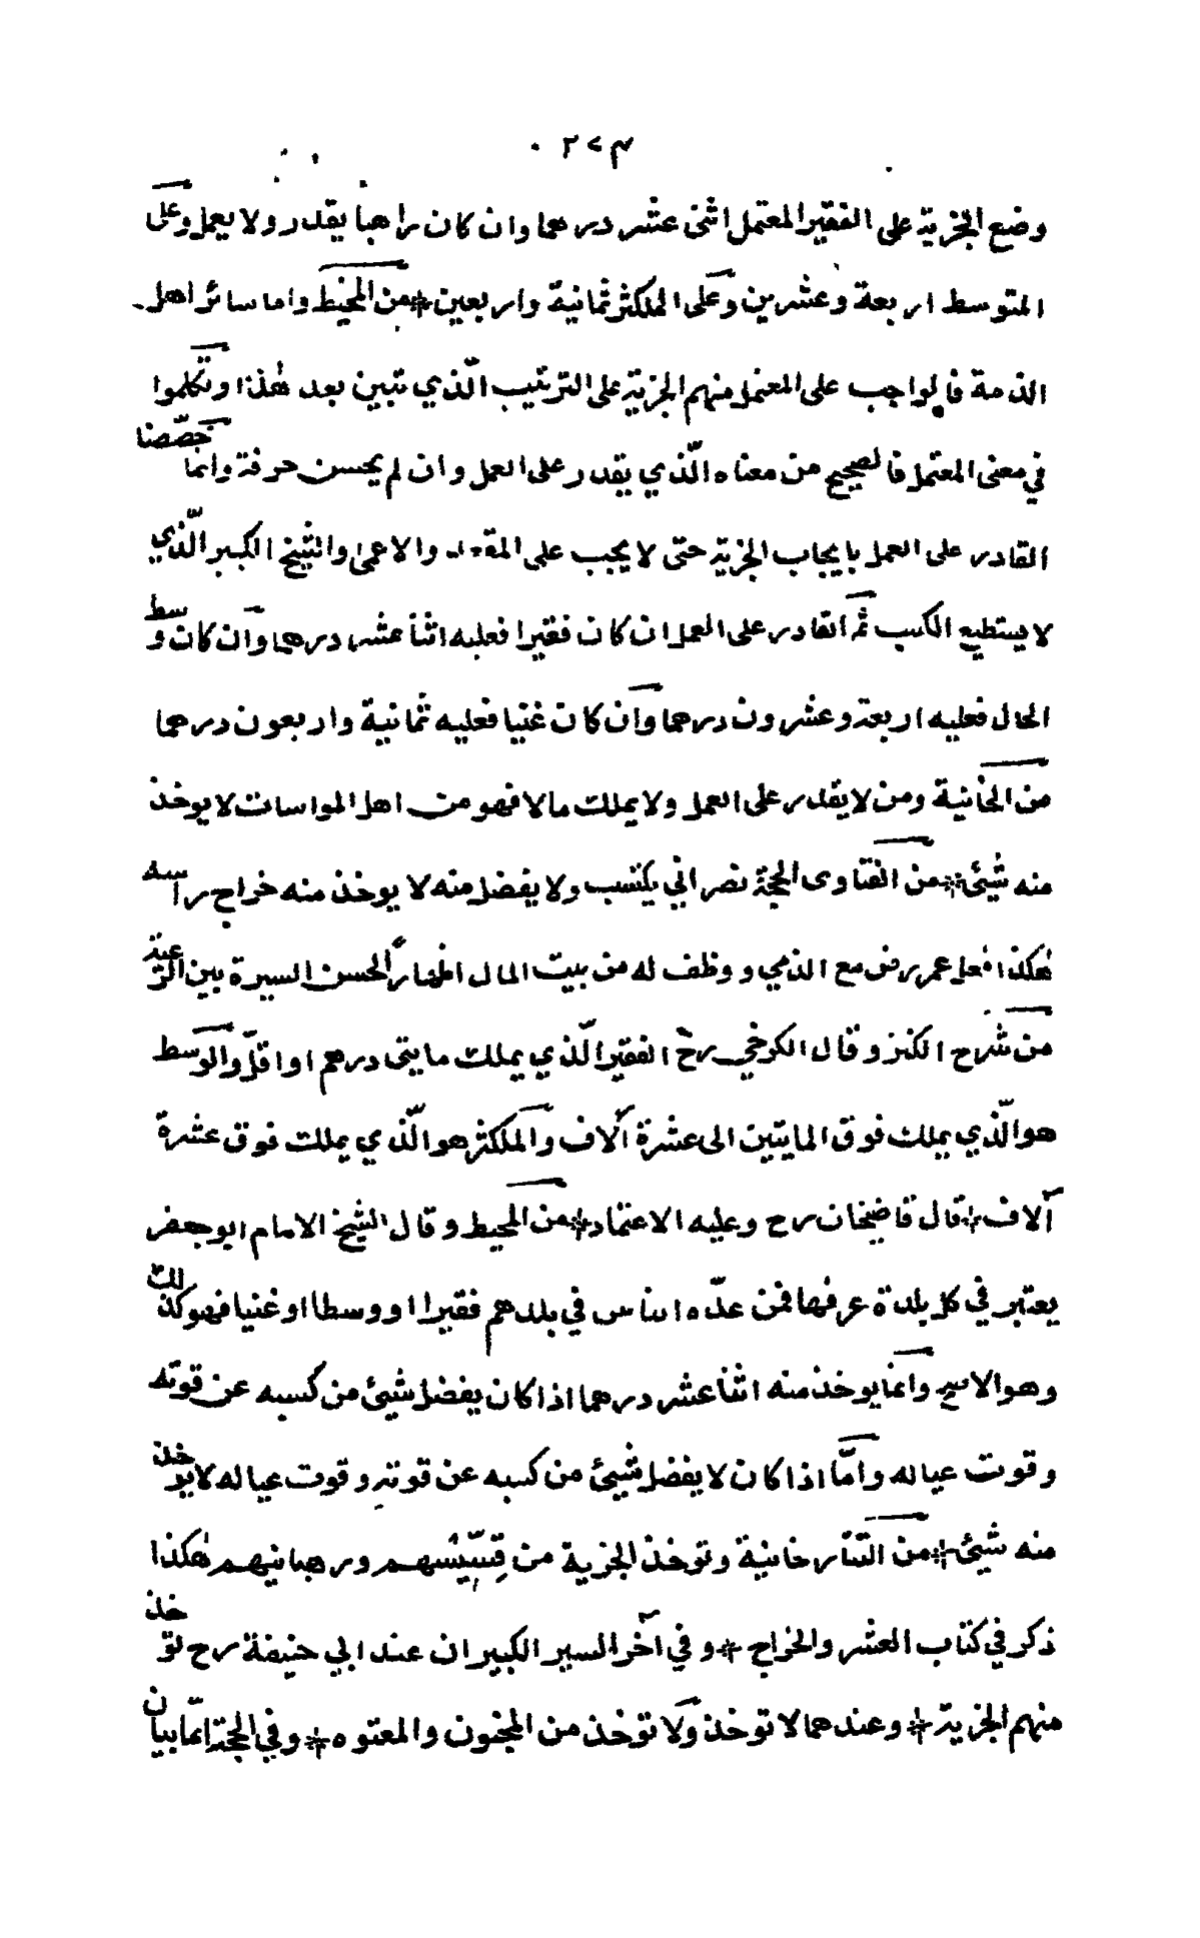 ٢٧٤
وضع الجزية على الفقير المعتمل اثنى عشر درهما وان كان راهبا يقدر ولا يعمل وعلى
المتوسط اربعة وعشرين وعلى المكثر ثمانية واربعين * من المحيط واما سائر اهل
الذمة فالواجب على المعتمل منهم الجزية على الترتيب الّذي تبين بعد هٰذا وتكلموا
في معنى المعتمل فالصحيح من معناه الّذي يقدر على العمل وان لم يحسن حرفة وانما خصّصنا
القادر على العمل بايجاب الجزية حتى لا يجب على المقعد والاعمى والشيخ الكبير الّذي
لا يستطيع الكسب ثم القادر على العمل ان كان فقيرا فعليه اثنا عشر درهما وان كان وسط
الحال فعليه اربعة وعشرون درهما وان كان غنيا فعليه ثمانية واربعون درهما
من الخانية ومن لا يقدر على العمل ولا يملك مالا فهو من اهل المواسات لا يوخذ
منه شيئ * من الفتاوى الحجة نصراني يكتسب ولا يفضل منه لا يوخذ منه خراج راسه
هٰكذا فعل عمر رض مع الذمي ووظف له من بيت المال اظهاراً لحسن السيرة بين الرعية
من شرح الكنز وقال الكرخي رح الفقير الّذي يملك مايتى درهم او اقلّ والوسط
هو الّذي يملك فوق المايتين الى عشرة آلاف والمكثر هو الّذي يملك فوق عشرة
آلاف * قال قاضيخان رح وعليه الاعتماد * من المحيط وقال الشيخ الامام ابو جعفر
يعتبر في كل بلدة عرفها فمن عدّه الناس في بلدهم فقيرا او وسطا او غنيا فهو كذلك
وهو الاصح وانما يوخذ منه اثنا عشر درهما اذا كان يفضل شيئ من كسبه عن قوته
وقوت عياله وامّا اذا كان لا يفضل شيئ من كسبه عن قوته وقوت عياله لا يوخذ
منه شيئ * من التتارخانية وتوخذ الجزية من قِسّيسهم ورهبانيهم هٰكذا
ذكر في كتاب العشر والخراج * وفي آخر السير الكبير ان عند ابي حنيفة رح توخذ
منهم الجزية * وعندهما لا توخذ ولا توخذ من المجنون والمعتوه * وفي الحجة امّا بيان